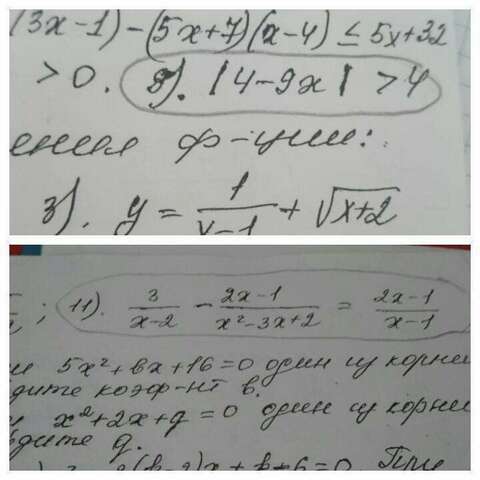 (3x-1)-(5x+7)(x-4) ≤ 5x+32
>0. 8). |4-9x| > 4
ения ф-ции:
3). y = 1/(x-1) + √(x+2)
; 11). 3/(x-2) - (2x-1)/(x²-3x+2) = (2x-1)/(x-1)
5x²+вx+16=0 один из корней
дите коэф-нт в.
x²+2x+q=0 один из корней
дите q.
x + k+6=0. При